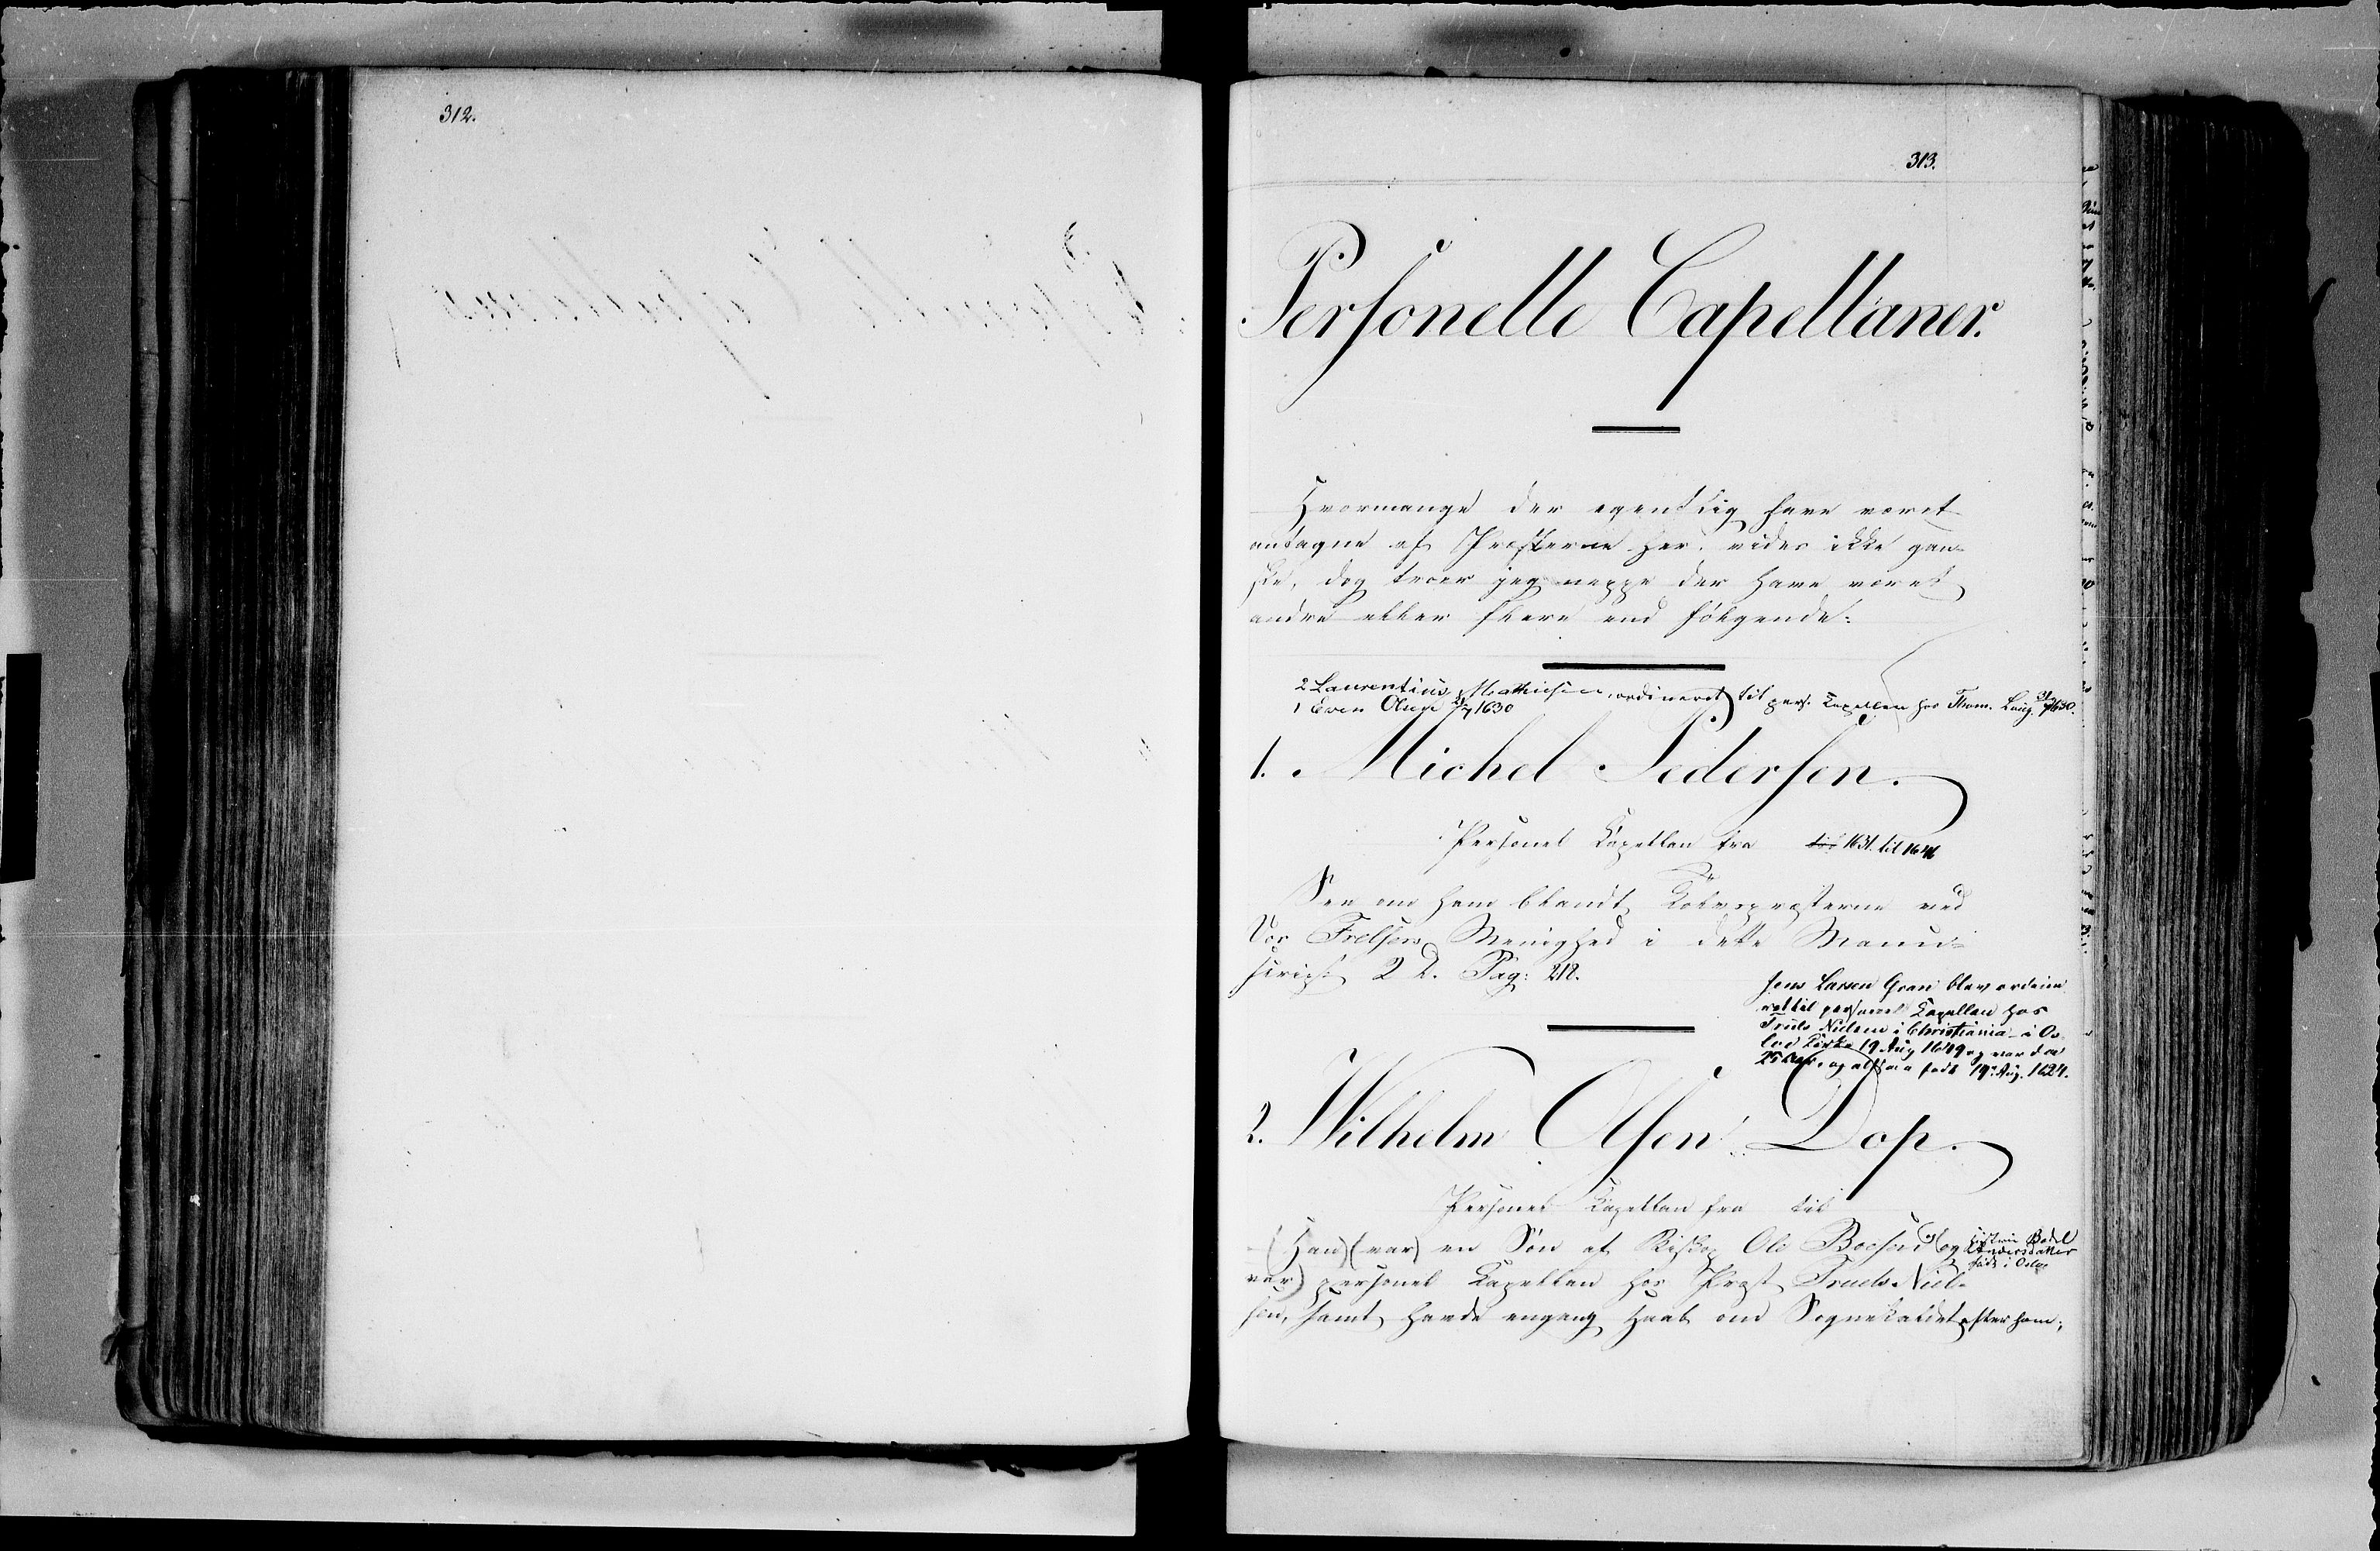 312.
313.
Personelle Capellaner.
Hvormange der egentlig have været
antagne af Præsterne her, vides ikke gan-
ske, dog troer jeg neppe der have været
andre eller flere end følgende:
2 Laurentius Mathiesen, ordineret til pers. Capellan hos Thom. Laug. 1630.
1 Even Olsen 1630
1. Michel Pedersen.
Personel Capellan fra til 1631. til 1646
See om ham blandt Sognepræsterne ved
Vor Frelsers Menighed i dette Manu-
script 2 D. Pag: 212.
Jens Larsen Gran blev ordine-
ret til personel Kapellan hos
Truls Nielsen i Christiania i Os-
loe Kirke 19 Aug 1649 og var da
25 Aar, og altsaa født 19. Aug. 1624.
2. Wilhelm Olsen Dop.
Personel Capellan fra til
(Han) (var) en Søn af Biskop Ole Boesen og Hustrue Bodel
Andersdatter
født i Oslo
var) personel Capellan hos Provst Truels Niel-
sen, samt havde engang Haab om Sognekaldet efter ham;